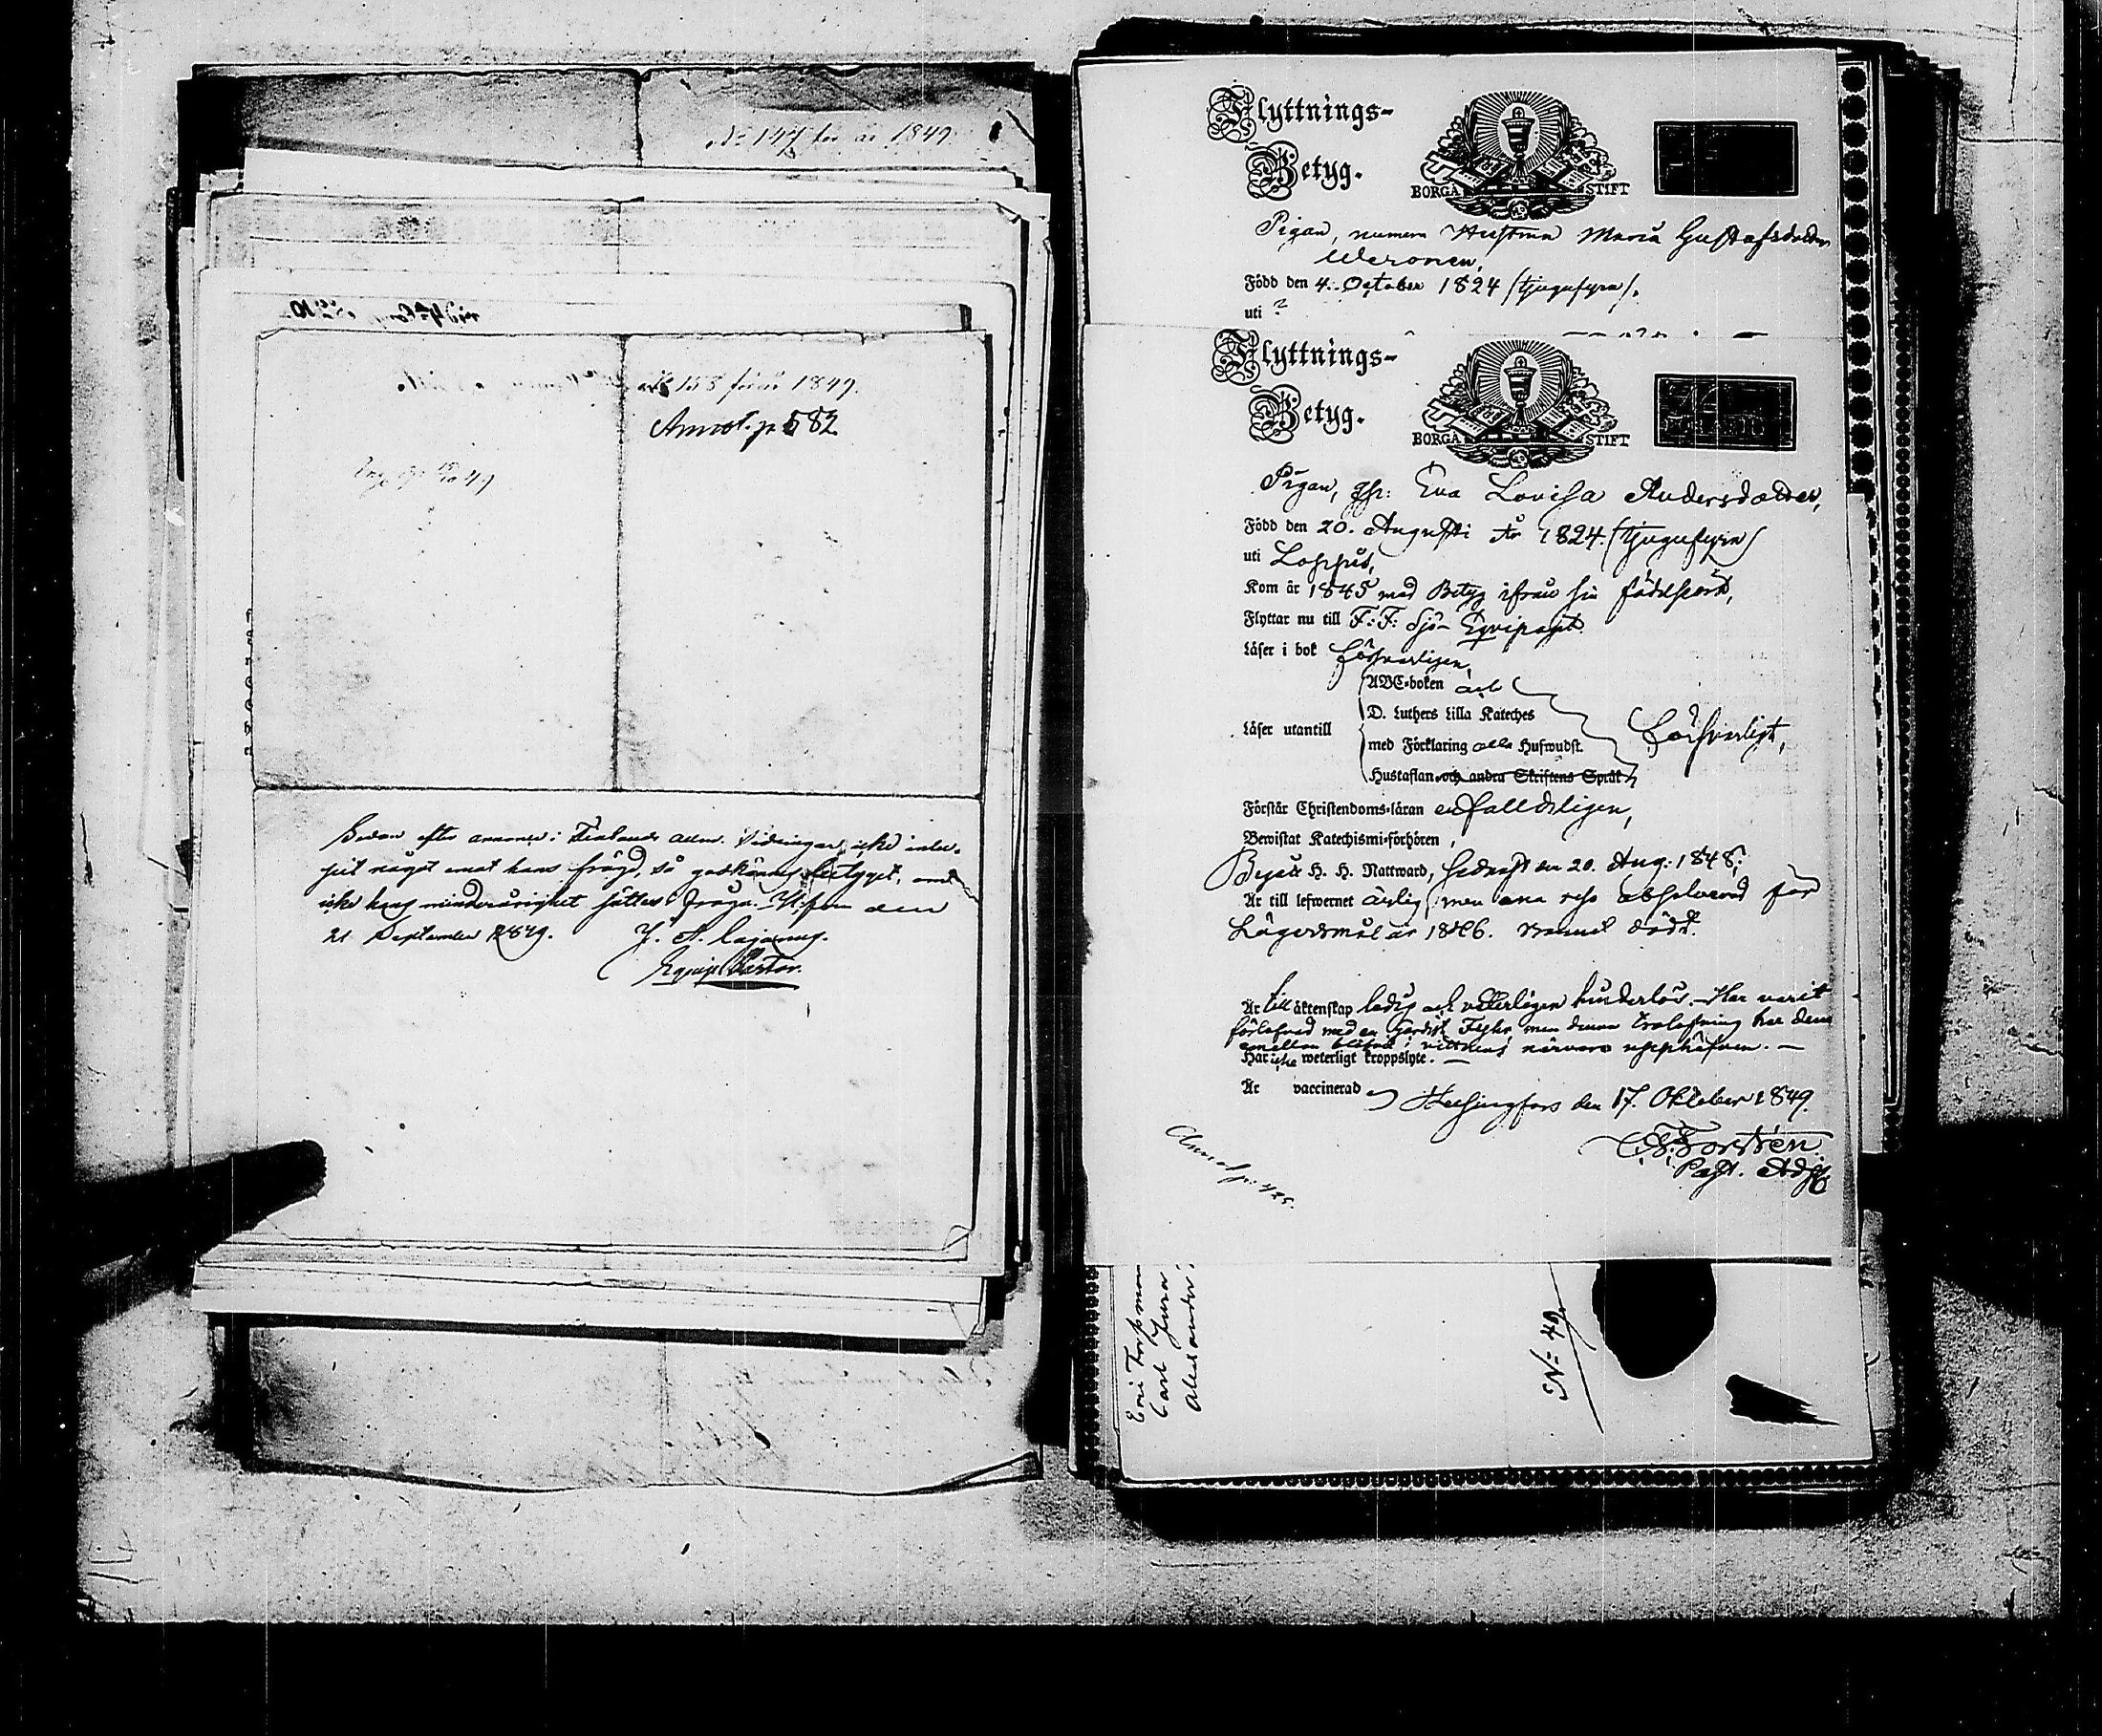 No 147 för år 1849.
No 158 för år 1849.
Annot. p 582
Sedan efter annonce i Finlands Allm. Tidningar icke inlu-
pit något emot hans frägd, så godkännes betyget, om
icke hans minderårighet sättes i fråga. H:fors den
21 September 1849.
Equip. Pastor.
Flyttnings-
Betyg.
BORGÅ STIFT
Pigan, numera Hustrun Maria Gustafsdotter
Född den 4. October 1824 /tjugufyra/.
uti ?
Flyttnings-
Betyg.
BORGÅ STIFT
Pigan, Eva Lovisa Andersdotter,
Född den 20. Augusti År 1824. /tjugufyra/
uti Loppis,
Kom år 1845 med Betyg ifrån sin födelseort,
Flyttar nu till F: F: Sjö-Equipaget.
Läser i bok försvarligen,
ABC-boken och
D. Luthers Lilla Kateches
Läser utantill
med Förklaring alla Hufwudst.
Försvarligt,
Hustaflan och andra Skriftens Språk
Förstår Christendoms-läran enfalldeligen,
Bewistat Katechismi-förhören,
Begår H. H. Nattward, sednast den 20. Aug: 1848;
Är till lefwernet ärlig, men en resa absolverad för
Lägersmål år 1846. Barnet dödt.
Är till äktenskap ledig och vetterligen hinderlös. Har varit
förlofvad med en Gardist men denna trolofning har dem
emellan blifvit i vittnens närvaro upphäfven. —
Har icke weterligt kroppslyte. —
Är vaccinerad
Helsingfors den 17. Oktober 1849.
Forstén.
Past. Adj.
Annot p: 425.
Carl
Alexander
No 49